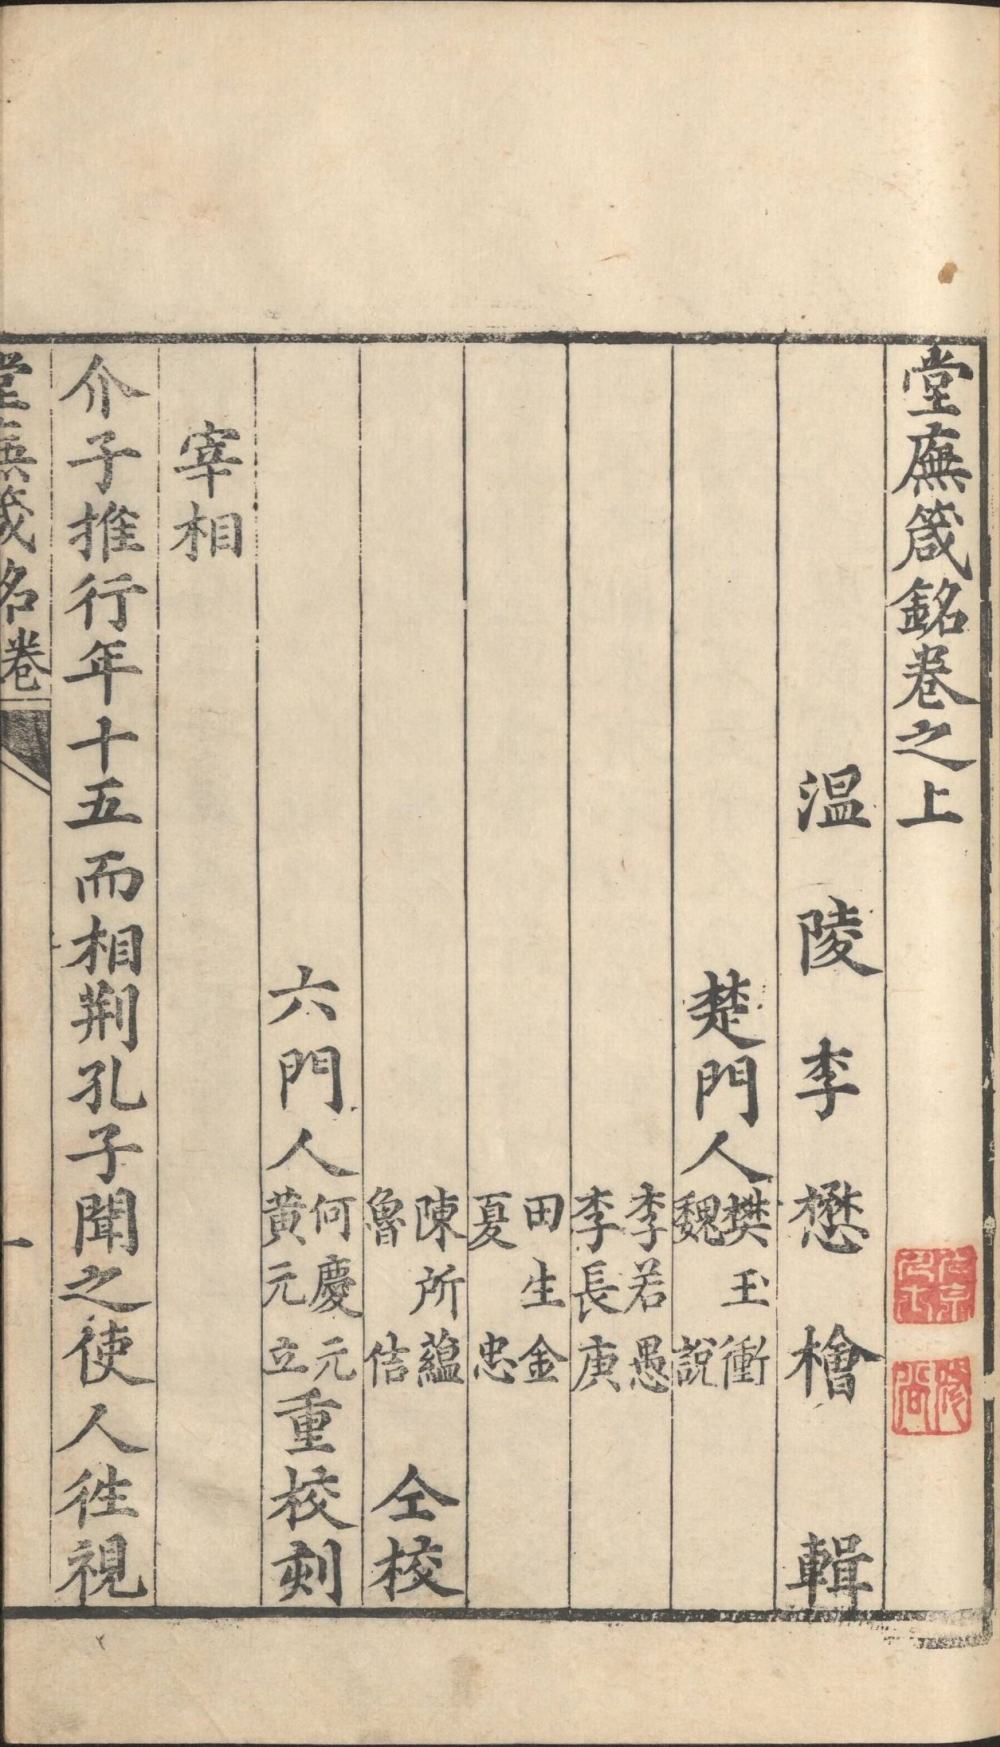 堂廡箴銘卷之上
溫陵李懋檜輯
楚門人樊玉衝
魏說
李若愚
李長庚
田生金
夏忠
陳所蘊
魯佶
仝校
六門人何慶元
黃元立
重校刻
宰相
介子推行年十五而相荆孔子聞之使人徃視
堂廡箴名卷
一